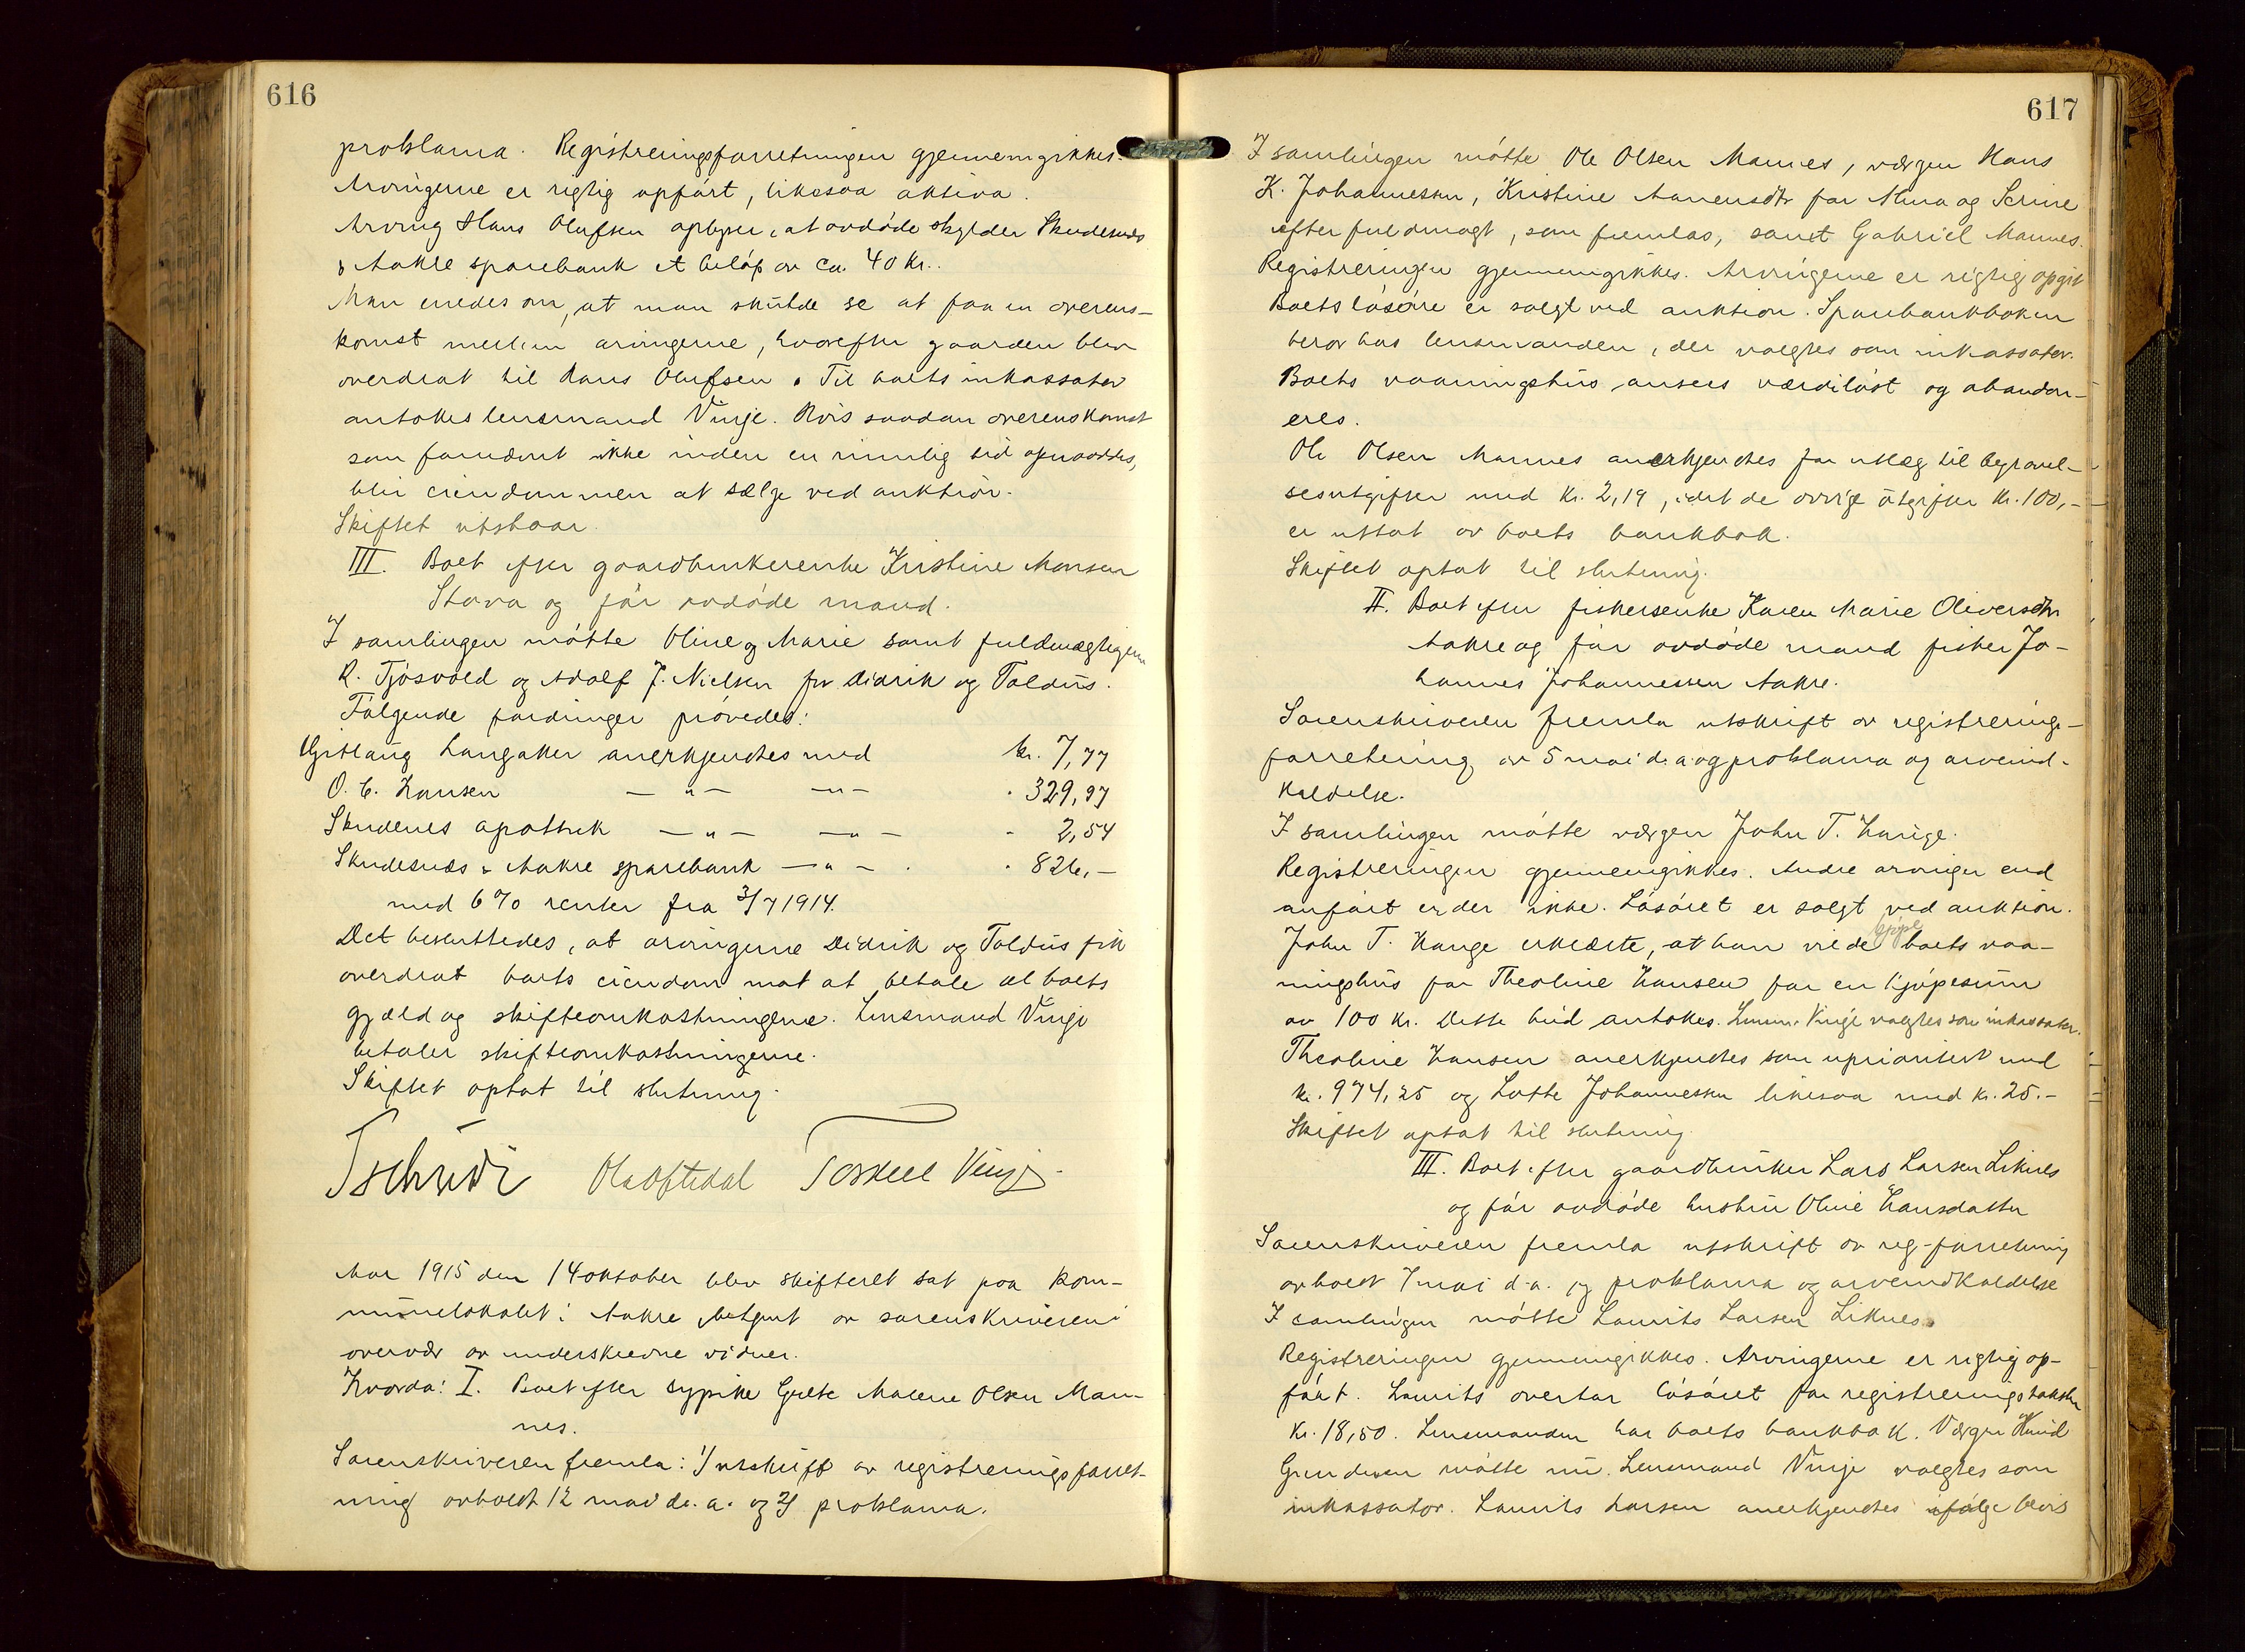 616
proklama. Registreringsforretningen gjennemgikkes.
Arvingerne er rigtig opført, likesaa aktiva.
Arving Hans Olufsen oplyser, at avdøde skylder Skudesnes
& Aakre sparebank et beløp av ca. 40 kr..
Man enedes om, at man skulde se at faa en overens-
komst mellem arvingerne, hvorefter gaarden blev
overdrat til Hans Olufsen. Til boets inkassator
antokes lensmand Vinje. Hvis saadan overenskomst
som fornævnt ikke inden en rimelig tid opnaaddes,
blir eiendommen at sælge ved auktion.
Skiftet utstaar.
III. Boet efter gaardbrukerenke Kristine Monsen
Stava og før avdøde mand.
I samlingen møtte Oline og Marie samt fuldmægtigene
R. Tjøsvold og Adolf J. Nielsen for Didrik og Toldus.
Følgende fordringer prøvedes:
Langaker anerkjendtes med kr. 7,77
O. C. Hansen — " — — " — · 329,97
Skudenes apothek — " — — " — - 2,54
Skudesnæs & Aakre sparebank — " — . · 826,—
med 6 % renter fra 3/7 1914.
Det besluttedes, at arvingerne Didrik og Toldus fik
overdrat boets eiendom mot at betale al boets
gjæld og skifteomkostningerne. Lensmand Vinje
betaler skifteomkostningerne.
Skiftet optat til slutning.
Ola Aftedal Torkell Vinje
Aar 1915 den 14 oktober blev skifteret sat paa kom-
munelokalet i Aakre, betjent av sorenskriveren i
overvær av underskrevne vidner.
Hvorda: I. Boet efter sypike Grete Malene Olsen Man-
nes.
Sorenskriveren fremla: 1/ utskrift av registreringsforret-
ning avholdt 12 mai d. a. og 2/ proklama.
617
I samlingen møtte Ole Olsen Mannes, værgen Hans
K. Johannessen, Kristine Aanensdtr for Alma og Serine
efter fuldmagt, som fremlas, samt Gabriel Mannes.
Registreringen gjennemgikkes. Arvingerne er rigtig opgit
Boets løsøre er solgt ved auktion. Sparebankboken
beror hos lensmanden, der valgtes som inkassator.
Boets vaaningshus ansees værdiløst og abandon-
eres.
Ole Olsen Mannes anerkjendtes for utlæg til begravel-
sesutgifter med kr. 2,19, idet de øvrige utgifter kr. 100,-
er uttat av boets bankbok.
Skiftet optat til slutning.
II. Boet efter fiskerenke Karen Marie Oliversdtr
Aakre og før avdøde mand fisker Jo-
hannes Johannessen Aakre.
Sorenskriveren fremla utskrift av registrerings-
forretning av 5 mai d. a. og proklama og arveind-
kaldelse.
I samlingen møtte værgen John T. Hauge.
Registreringen gjennemgikkes. Andre arvinger end
anført er der ikke. Løsøret er solgt ved auktion.
kjøpe
John T. Hauge erklærte, at han vilde boets vaa-
ningshus for Theoline Hansen for en kjøpesum
av 100 kr. Dette bud antokes. Lensm. Vinje valgtes som inkassator.
Theoline Hansen anerkjendtes som uprioritert med
kr. 974,25 og Lotte Johannessen likesaa med kr. 25.-
Skiftet optat til slutning
III. Boet efter gaardbruker Lars Larsen Liknes
og før avdøde hustru Oline Hansdatter
Sorenskriveren fremla utskrift av reg-forretning
avholdt 7 mai d. a. og proklama og arveindkaldelse
I samlingen møtte Laurits Larsen Liknes.
Registreringen gjennemgikkes. Arvingerne er rigtig op-
ført. Laurits overtar løsøret for registreringstaksten
kr. 18,50. Lensmanden har boets bankbok. Værgen Knud
møtte nu. Lensmand Vinje valgtes som
inkassator. Laurits Larsen anerkjendtes ifølge bevis